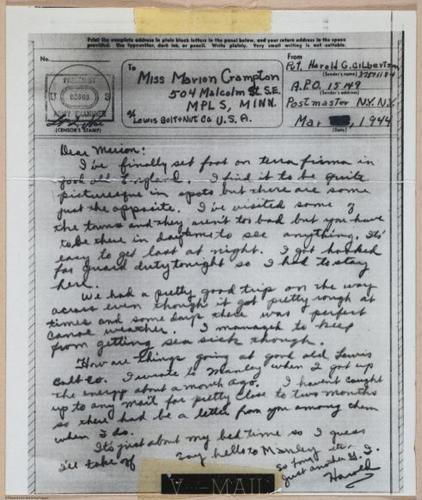 Print the complete address in plain block letters in the panel below, and your return address in the space
provided. Use typewriter, dark ink, or pencil. Write plainly. Very small writing is not suitable.
No.
To
From
Miss Marion Crampton
504 Malcolm St. S.E.
MPLS, MINN.
% Louis Bolt & Nut Co U.S.A.
Pvt. Harold G. Gilbertson
(Sender's name)
A.P.O. 15149
(Sender's address)
Postmaster N.Y. N.Y.
Mar 1944
(Date)
(CENSOR'S STAMP)
Dear Marion:
I've finally set foot on terra firma in
good old England. I find it to be quite
picturesque in spots but there are some
just the opposite. I've visited some of
the towns and they aren't too bad but you have
to be there in daytime to see anything. It's
easy to get lost at night. I got hooked
for guard duty tonight so I had to stay
here.
We had a pretty good trip on the way
across even though it got pretty rough at
times and some days there was perfect
canoe weather. I managed to keep
from getting sea sick though.
How are things going at good old Lewis
Bolt Co. I wrote to Manley when I got up
the energy about a month ago. I haven't caught
up to any mail for pretty close to two months
so there had be a letter from you among them
when I do.
It's just about my bed time so I guess
I'll take off Say hello to Manley
So long
Just another G.I.
Harold
V-MAIL